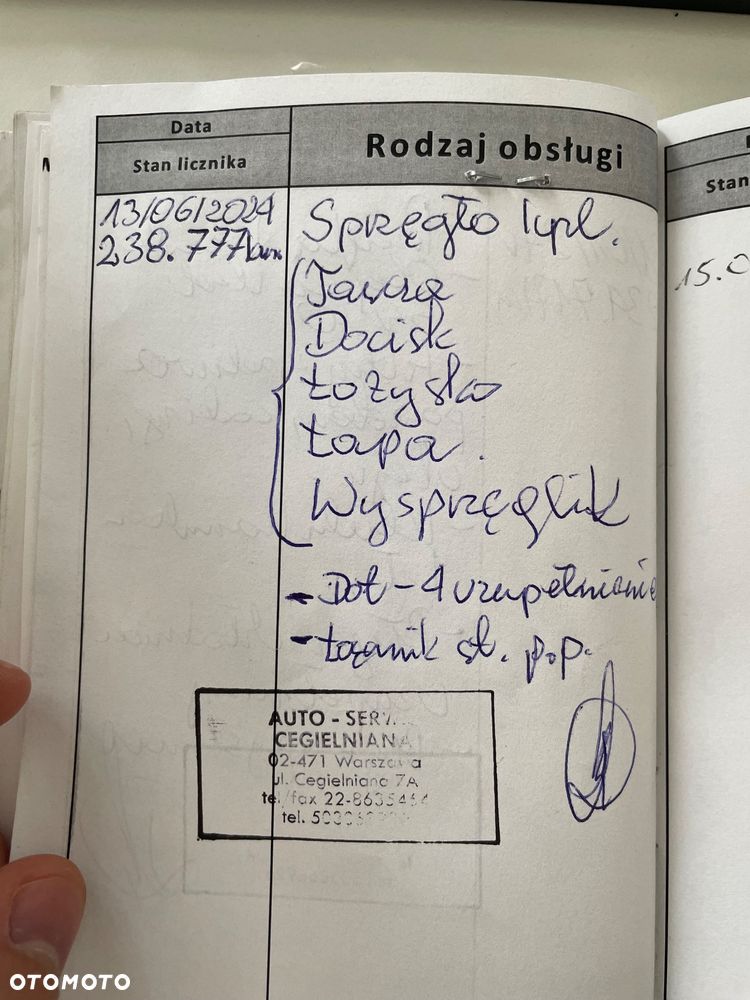 Data
Stan licznika
Rodzaj obsługi
13/06/2024
238.777km
Sprzęgło kpl.
Tarcza
Docisk
Łożysko
Łapa.
Wysprzęglik
- Dot-4 uzupełnienie
- Łącznik st. p.p.
AUTO - SERW
CEGIELNIANA
02-471 Warszawa
ul. Cegielniana 7A
tel/fax 22-8635464
tel.
Stan
15.0
OTOMOTO